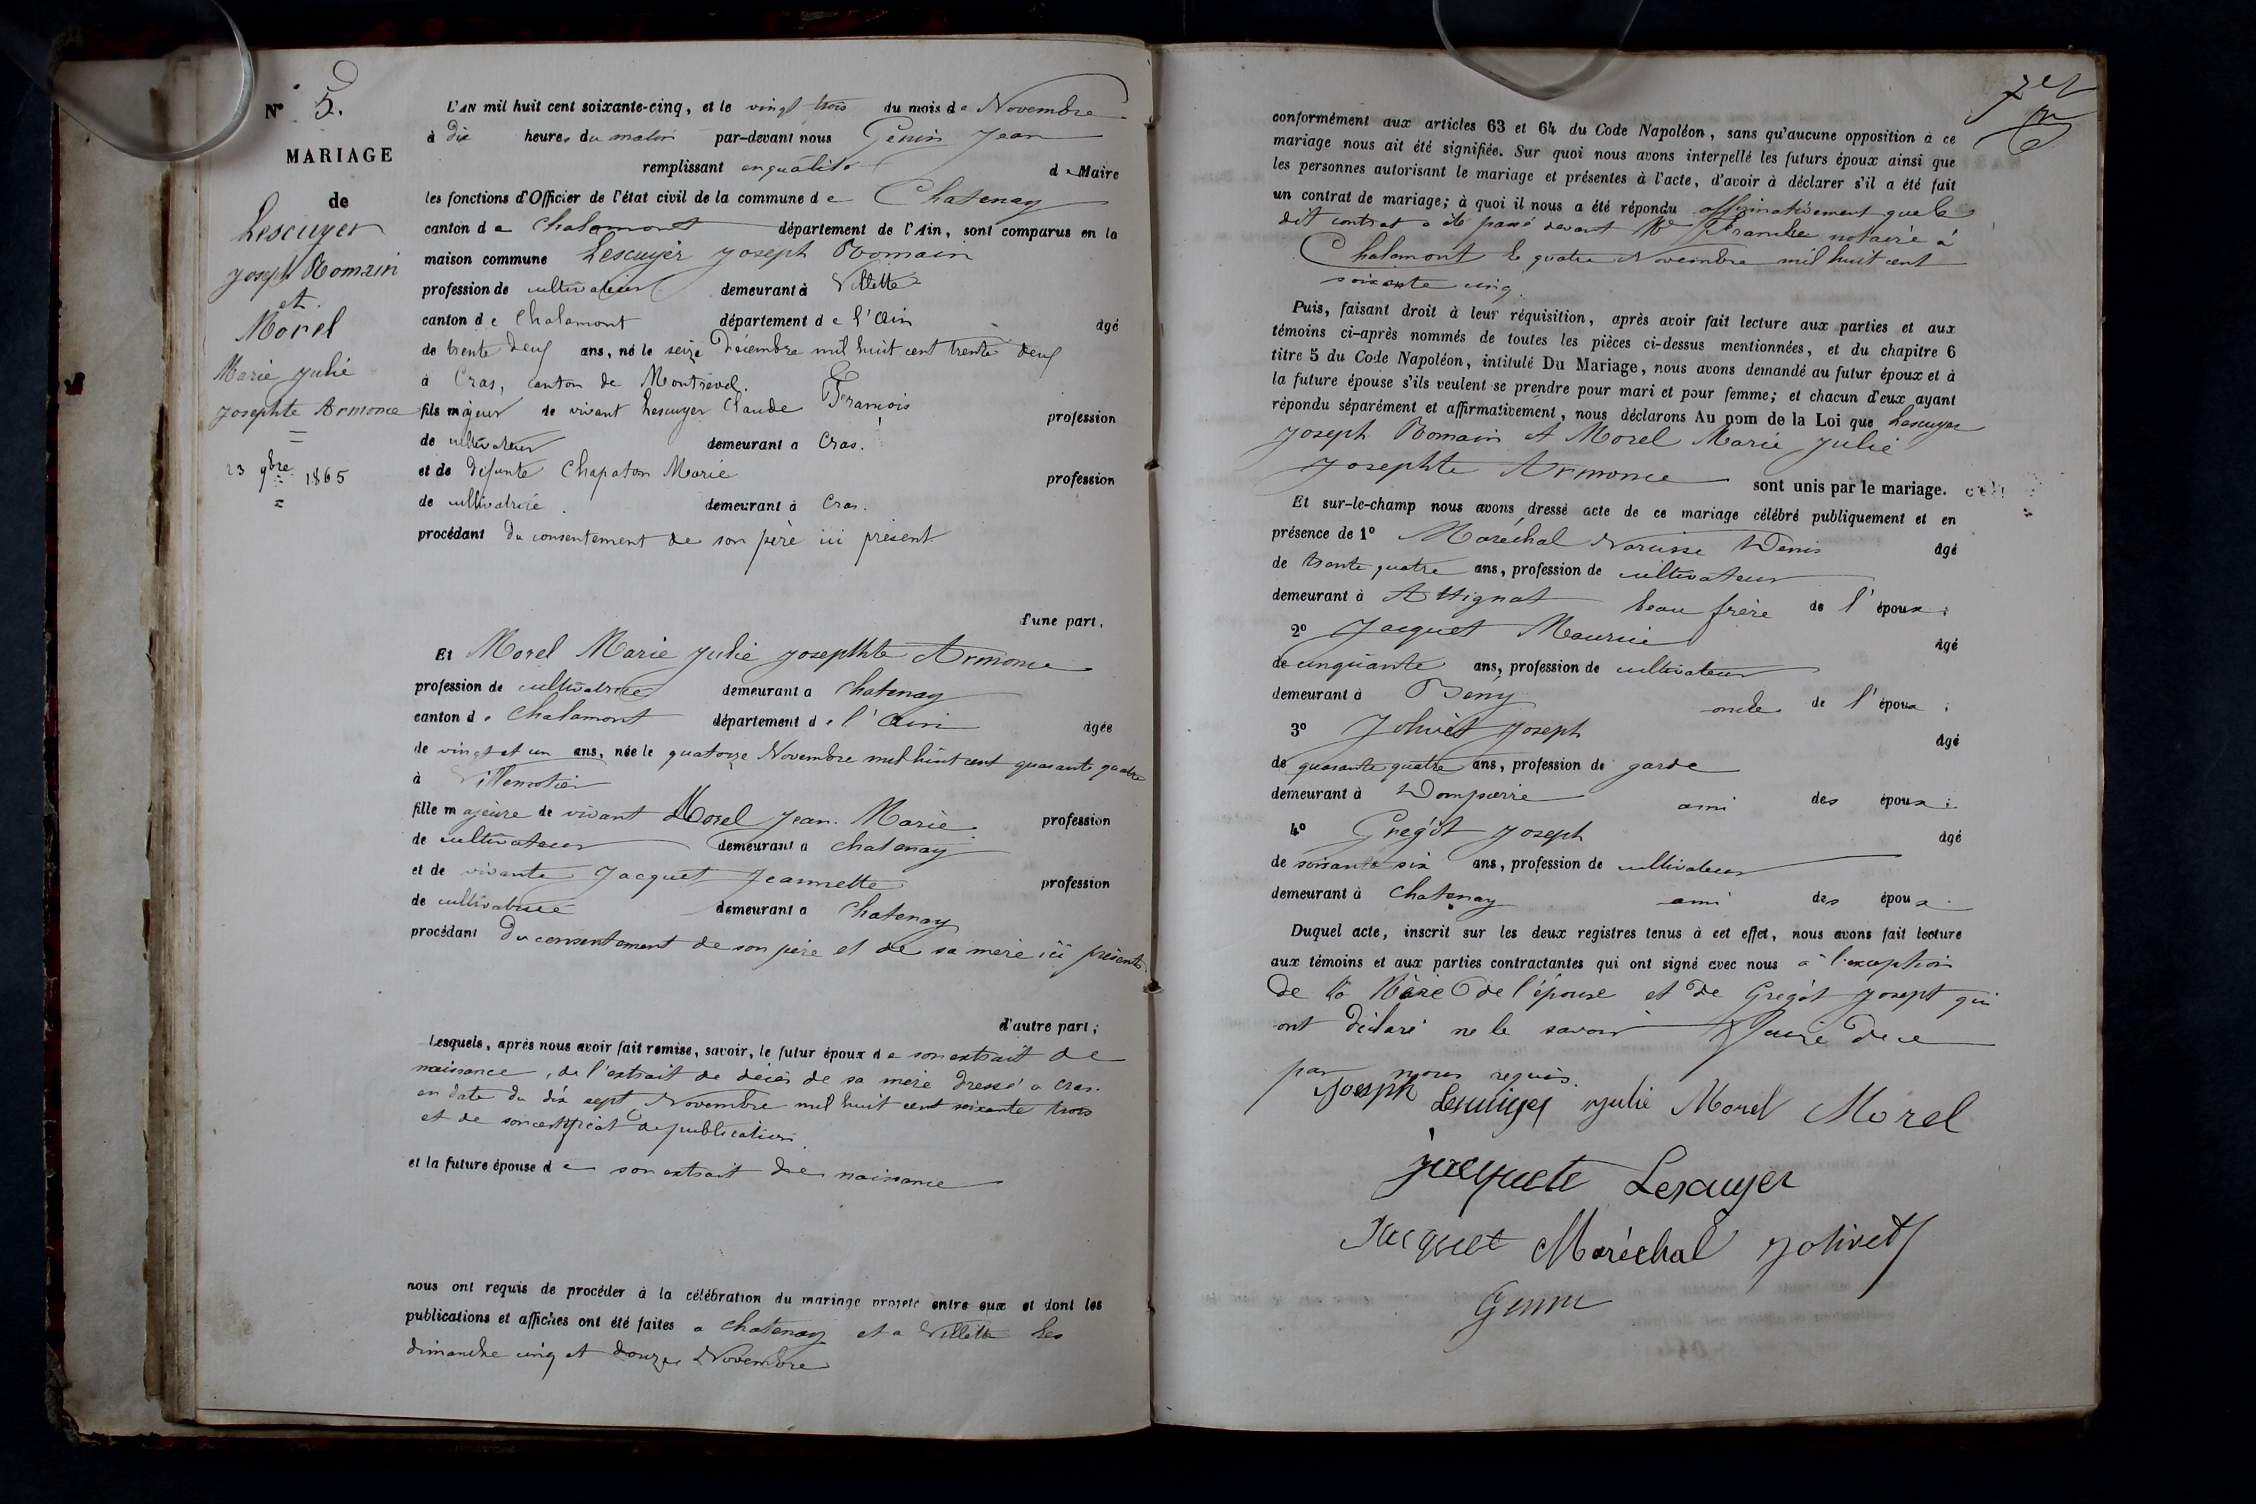 N° 5.
MARIAGE
de
Lescuyer
Joseph Romain
et
Morel
Marie Julie
Josephte Armonce
23 9bre 1865
L'AN mil huit cent soixante-cinq, et le vingt trois du mois de Novembre
à dix heures du matin par-devant nous Genin Jean
remplissant en qualité de Maire
les fonctions d'Officier de l'état civil de la commune de Chatenay
canton de Chalamont département de l'Ain, sont comparus en la
maison commune Lescuyer Joseph Romain
profession de cultivateur demeurant à Villette
canton de Chalamont département de l'Ain âgé
de trente deux ans, né le seize Décembre mil huit cent trente deux
à Cras, canton de Montrevel.
fils majeur de vivant Lescuyer Claude François profession
de cultivateur demeurant à Cras.
et de défunte Chapaton Marie profession
de cultivatrice demeurant à Cras.
procédant du consentement de son père ici présent
d'une part,
Et Morel Marie Julie Josephte Armonce
profession de cultivatrice demeurant à Chatenay
canton de Chalamont département de l'Ain âgée
de vingt et un ans, née le quatorze Novembre mil huit cent quarante quatre
à Villemotier
fille majeure de vivant Morel Jean Marie profession
de cultivateur demeurant à Chatenay
et de vivante Jacquet Jeannette profession
de cultivatrice demeurant à Chatenay
procédant du consentement de son père et de sa mère ici présents
d'autre part;
Lesquels, après nous avoir fait remise, savoir, le futur époux de son extrait de
naissance, de l'extrait de décès de sa mère dressé à Cras.
en date du dix sept Novembre mil huit cent soixante trois
et de son certificat de publication
et la future épouse de son extrait de naissance
nous ont requis de procéder à la célébration du mariage projeté entre eux et dont les
publications et affiches ont été faites à Chatenay et à Villette les
dimanche cinq et douze Novembre
conformément aux articles 63 et 64 du Code Napoléon, sans qu'aucune opposition à ce
mariage nous ait été signifiée. Sur quoi nous avons interpellé les futurs époux ainsi que
les personnes autorisant le mariage et présentes à l'acte, d'avoir à déclarer s'il a été fait
un contrat de mariage; à quoi il nous a été répondu affirmativement que le
dit contrat a été passé devant Me notaire à
Chalamont le quatre Novembre mil huit cent
soixante cinq.
Puis, faisant droit à leur réquisition, après avoir fait lecture aux parties et aux
témoins ci-après nommés de toutes les pièces ci-dessus mentionnées, et du chapitre 6
titre 5 du Code Napoléon, intitulé Du Mariage, nous avons demandé au futur époux et à
la future épouse s'ils veulent se prendre pour mari et pour femme; et chacun d'eux ayant
répondu séparément et affirmativement, nous déclarons Au nom de la Loi que Lescuyer
Joseph Romain et Morel Marie Julie
Josephte Armonce sont unis par le mariage.
Et sur-le-champ nous avons dressé acte de ce mariage célébré publiquement et en
présence de 1° Maréchal Narcisse Denis âgé
de trente quatre ans, profession de cultivateur
demeurant à Attignat beau frère de l'époux;
2° Jacquet Maurice âgé
de cinquante ans, profession de cultivateur
demeurant à Beny oncle de l'épou ;
3° Jolivet Joseph âgé
de quarante quatre ans, profession de garde
demeurant à Dompierre ami des époux;
4° Gregot Joseph âgé
de soixante six ans, profession de cultivateur
demeurant à Chatenay ami des époux.
Duquel acte, inscrit sur les deux registres tenus à cet effet, nous avons fait lecture
aux témoins et aux parties contractantes qui ont signé avec nous à l'exception
de la Mère de l'épouse et de Gregot Joseph qui
ont déclaré ne le savoir faire de ce
par nous requis.
Joseph Lescuyer Julie Morel Morel
Jacquete Lescuyer
Jacquet Maréchal Jolivet
Genin